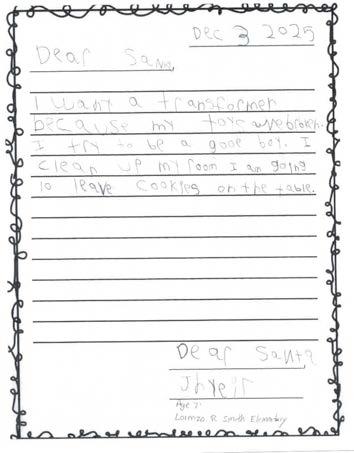 Dec 3 2025
Dear Santa,
I want a transformer
because my toys are broken.
I try to be a good boy. I
clean up my room I am going
to leave cookies on the table.
Dear Santa
Age 7
Lorenzo R. Smith Elementary